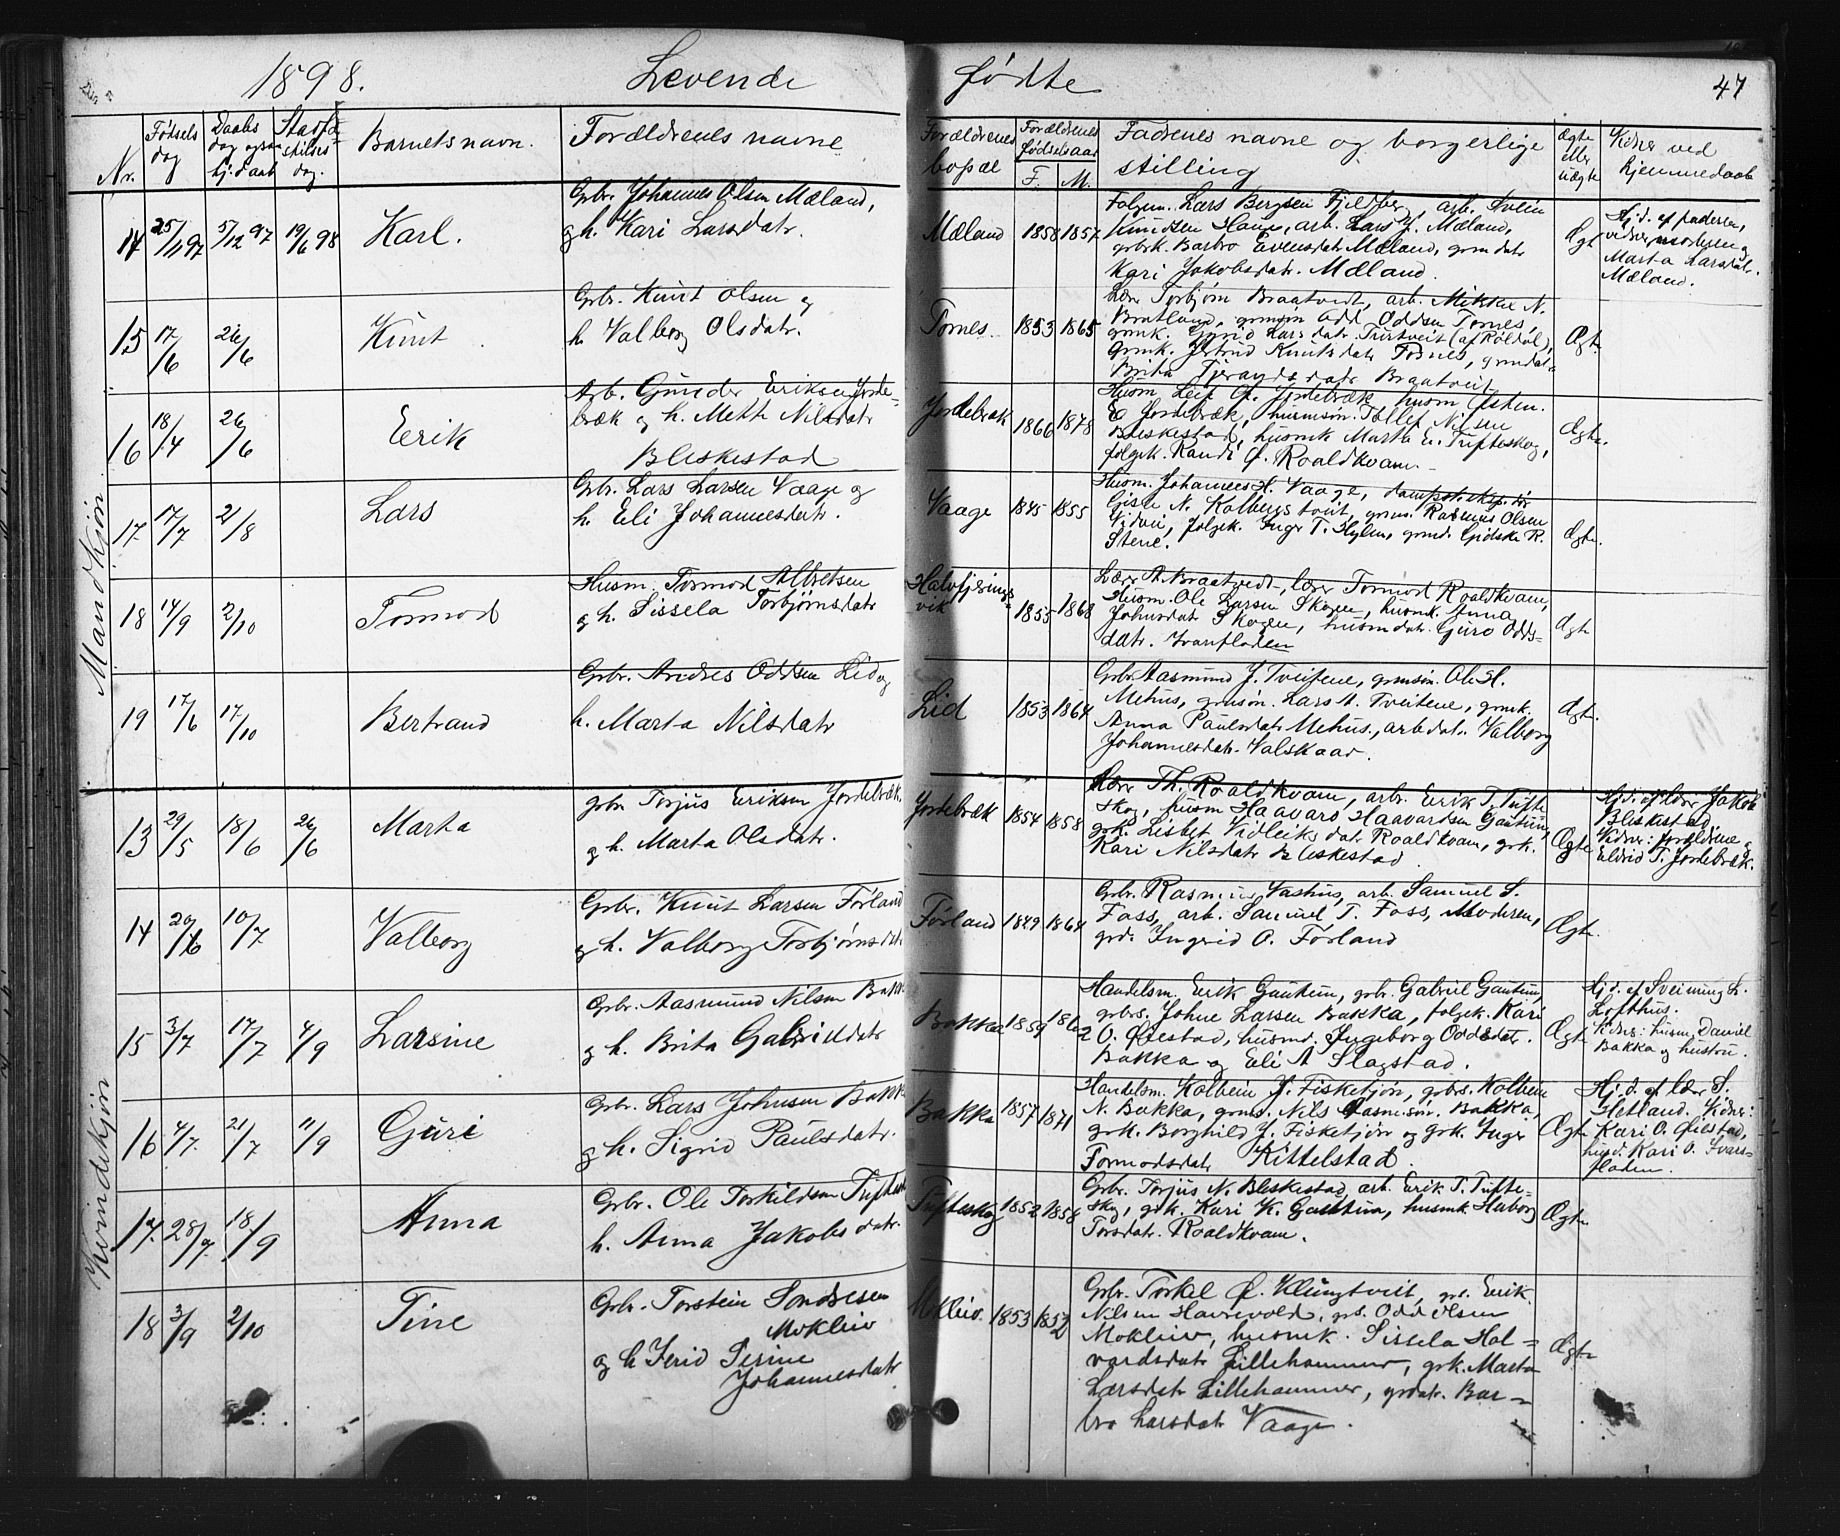 1898. Levende fødte 47
Nr. Fødsels dag Daabs dag ogsaa hj. daab Stadfæstelses dag. Barnets navn. Forældrenes navne Forældrenes bopæl Forældrenes fødselsaar F. M. Faddrenes navne og borgerlige stilling Ægte eller uægte Vidner ved hjemmedaab
Mandkjøn
14 25/11 97 5/12 97 19/6 98 Karl.
Gbr. Johannes Olsen Mæland,
og h. Kari Larsdatr.
Mæland 1858 1857
Folgm. Lars Bergsen Fjeldberg, arb. Svein
Knudsen Hauge, arb. Lars J. Mæland,
grbrk. Barbro Evensdatr Mæland, grm datr
Kari Jakobsdatr. Mæland.
Ægt
Hj. d. af faderen,
vidner, moderen og
Marta Larsdatr.
Mæland.
15 17/6 26/6 Knut
Gbr. Knut Olsen og
h. Valborg Olsdatr.
Tornes. 1853 1865
Lær Torbjørn Braatvedt, arb. Mikkel N.
Bratland, grmsøn Odd Oddsen Tornes,
grmk. Guro Lars datr. Turtveit (af Røldal),
grmk. Jorid Knuts datr Tornes, grmdat
Brita Tjerandsdatr Braatveit
Ægt.
16 18/4 26/6 Erik
Arb. Gunder Eriksen Jorde-
bræk og h. Mette Nilsdatr
Bleskestad
Jordebræk 1866 1878
Husm. Leif Ø. Jordebræk, husm Østen.
E Jordebræk, husmsøn. Tollef Nilsen
Bleskestad, husmk Marta E. Tufteskog,
folgek. Randi Ø. Roaldkvam.
Ægte.
17 17/7 21/8 Lars
Gbr. Lars Larsen Vaage og
h. Eli Johannesdatr.
Vaage 1845 1855
Husm. Johannes H. Vaage, dampsk. exp. dør
Gisle N. Kolbeinstveit, grms. Rasmus Olsen
Vidvei, folgek. Inger T. Hylen, grmd. Gidske R.
Stene.
Ægte.
18 14/9 2/10 Tormod
Husm. Tormod Albretsen
og h. Sissela Torbjørnsdatr
Halvfjerings-
vik 1855 1868
Lær A Braatvedt, lær Tormod Roaldkvam,
Husm. Ole Larsen Skogen, husmk. Anna
Johnsdatr Skogen, husmdatr. Guro Odds-
datr. Ivarsfloden
Ægte
19 17/6 17/10 Bertrand
Gbr. Andres Oddsen Lid og
h. Marta Nilsdatr
Lid 1853 1864
Gbr. Aasmund J. Tveitene, grmsøn. Ole H.
Mehus, grmsøn. Lars A. Tveitene, grmk.
Anna Paulsdatr Mehus., arbdatr. Valborg
Johannesdatr. Valskaar.
Ægt.
Kvindekjøn
13 29/5 18/6 26/6 Marta
gbr Torjus Eriksen Jordebræk,
og h. Marta Olsdatr.
Jordebræk 1854 1858
Lær Th. Roaldkvam, arb. Erik T. Tufte-
skog, husm Haavard Haavardsen Gautun,
grk. Lisbet Vidleiks datr Roaldkvam, grk.
Kari Nilsdatr Bleskestad.
Ægte
Hj. d. af lær Jakob
Bleskestad
Vidner: forældrene og
Eldrid T. Jordebræk.
14 20/6 10/7 Valborg
Gbr. Knut Larsen Førland
og h. Valborg Torbjørnsdatr
Førland 1849 1864
Gbr. Rasmus Vashus, arb. Samuel S.
Foss, arb. Samuel T. Foss, Moderen,
grd. Ingrid O. Førland
Ægte.
15 3/7 17/7 4/9 Larsine
Gbr. Aasmund Nilsen Bakka
og h. Brita Gabrieldatr
Bakka 1859 1862
Handelsm. Erik Gautun, gbr. Gabriel Gautun,
grbrs. Johne Larsen Bakka, folgek. Kari
O. Øiestad, husmd. Ingeborg Oddsdatr.
Bakka og Eli A Slagstad.
Ægte
Hj. d. af Sveinung L.
Lofthus.
Vidner: husm. Daniel
Bakka og hustru.
16 4/7 21/7 11/9 Guri
Gbr. Lars Johnsen Bakka
og h. Sigrid Paulsdatr.
Bakka 1857 1871
Handelsm. Kolbein J. Fisketjøn, gbrs. Kolbein
N. Bakka, grms. Nils Aasm. søn. Bakka,
grk. Borghild J. Fisketjøn og grk. Inger
Tormodsdatr Kittelstad.
Ægte
Hj. d. af lær S.
Hetland. Vidner:
Kari O. Øiestad,
husd. Kari O. Ivars-
floden.
17. 28/7 18/9 Anna
Gbr. Ole Torkildsen Tufteskog
h. Anna Jakobsdatr.
Tufteskog 1852 1858
Gbr. Torjus N. Bleskestad, arb. Erik T. Tufte-
skog, grk. Kari K. Gautun, husmk. Haborg
Torsdatr. Roaldkvam.
Ægte
18 3/9 2/10 Tine
Gbr. Torstein Sondresen
Mokleiv
og h Jorid Serine
Johannesdatr
Mokleiv. 1853 1857
Gbr. Torkel Ø. Klungtveit, grs. Erik
Nilsen Havrevold, grs. Odd Olsen
Mokleiv, husmk. Sissela Hal-
vardsdatr Lillehammer, grk. Marta
Larsdatr Lillehammer, grdatr. Bar-
bro Larsdatr Vaage.
Ægte